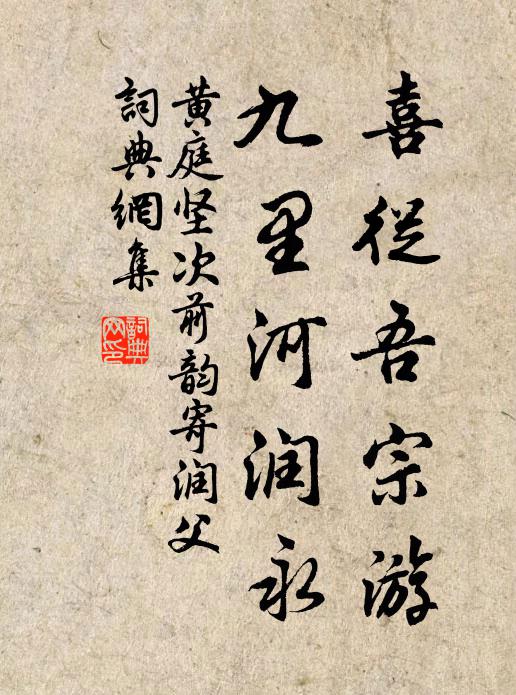 喜從吾宗游
九里河润永
黄庭坚次前韵寄润父
詞典網集
詞典網印